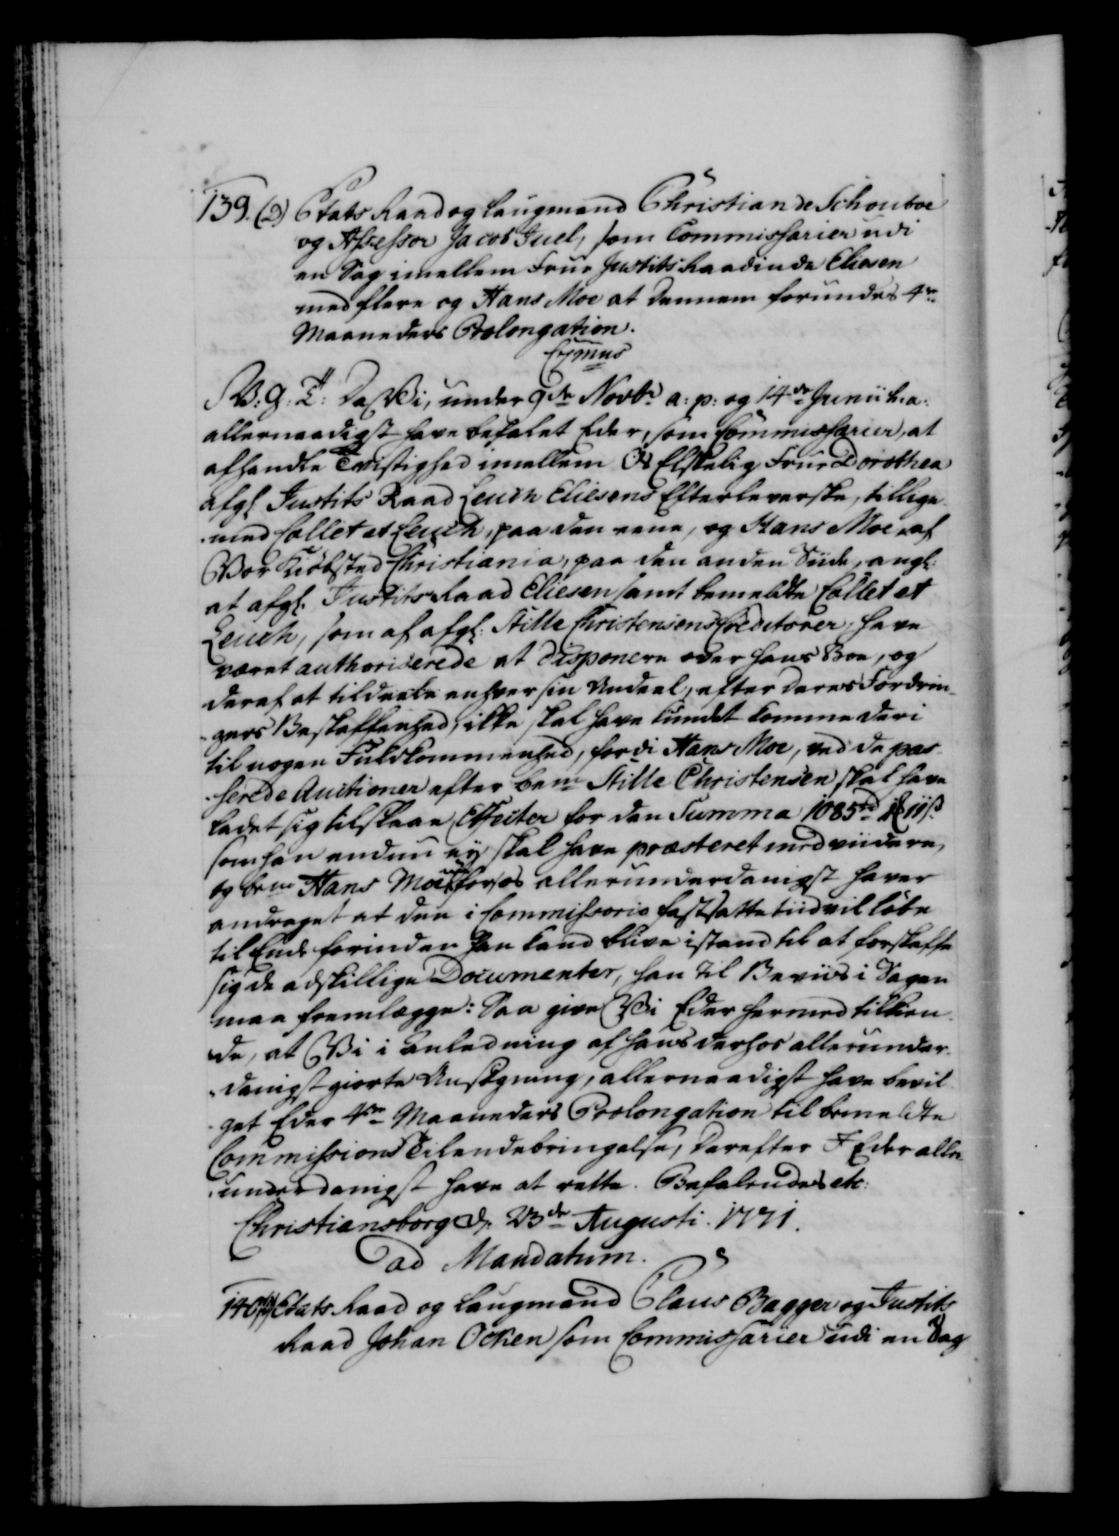 139. (D) Etats Raad og Laugmand Christian de Schouboe
og Assessor Jacob Juel, som Commissarier udi
en Sag imellem Frue Justits Raadinde Eliesen
med flere og Hans Moe at dennem forundes 4re
Maaneders Prolongation.
V. G. T. Da Vi, under 9de Novbr a: p: og 14de Junii h: a:
allernaadigst have befalet Eder, som Commissarier, at
afhandle Tvistighed imellem Os Elskelig Frue Dorothea
afgl Justits Raad Leuch Eliesens Efterleverske, tillige
med Collet et Leuch, paa den eene, og Hans Moe, af
Vor Kiøbsted Christiania, paa den anden Siide, angl:
at afgl. Justits Raad Eliesen samt bemeldte Collet et
Leuch, som af afgl: Stille Christensens Creditorer, have
været authoriserede at disponere over hans Boe, og
deraf at tildeele enhver sin Andeel, efter deres Fordrin-
gers Beskaffenhed, ikke skal have kundet komme deri
til nogen Fuldkommenhed, fordi Hans Moe, ved de pas-
serede Auctioner efter bem:te Stille Christensen skal have
ladet sig tilslaae Effecter for den Summa 1085 rd
som han endnu ey skal have præsteret med viidere,
og bem:te Hans Moe for Os allerunderdanigst haver
andraget at den i Commissorio fastsatte tiid vil løbe
til Ende forinden han kand blive i stand til at forskaffe
sig de adskillige Documenter, han til Beviis i Sagen
maa fremlægge: Saa give Vi Eder hermed tilkien-
de, at Vi i Anledning af hans derhos allerunder-
danigst giorte Ansøgning, allernaadigst have bevil-
get Eder 4re Maaneders Prolongation til bemeldte
Commissions Tilendebringelse, derefter I Eder aller
underdanigst have at rette. Befalendes etc:
Christiansborg d. 23de Augusti. 1771.
ad Mandatum.
140 Etats Raad og Laugmand Claus Bagger og Justits
Raad Johan Ocken som Commissarier udi en Sag